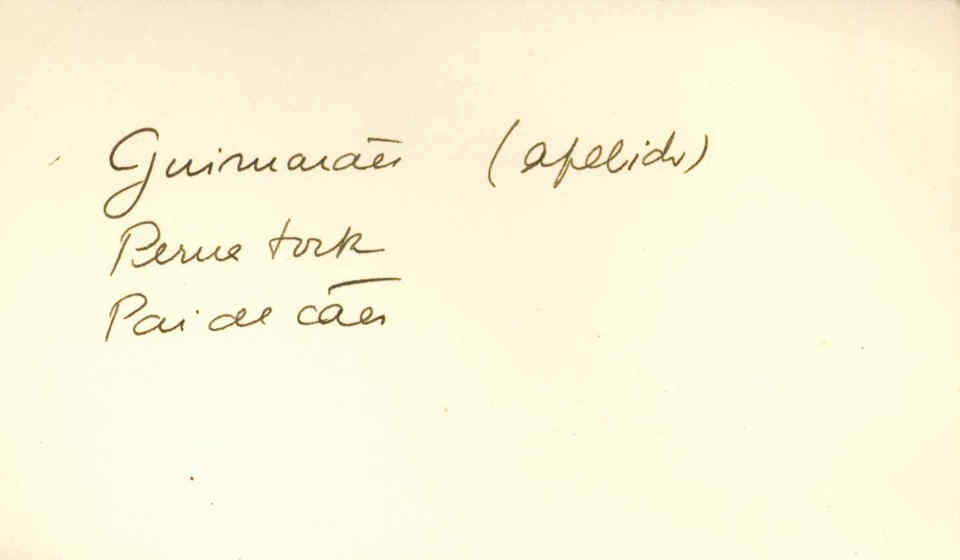 Guimarães (apelido)
Perna torta
Pai de cães